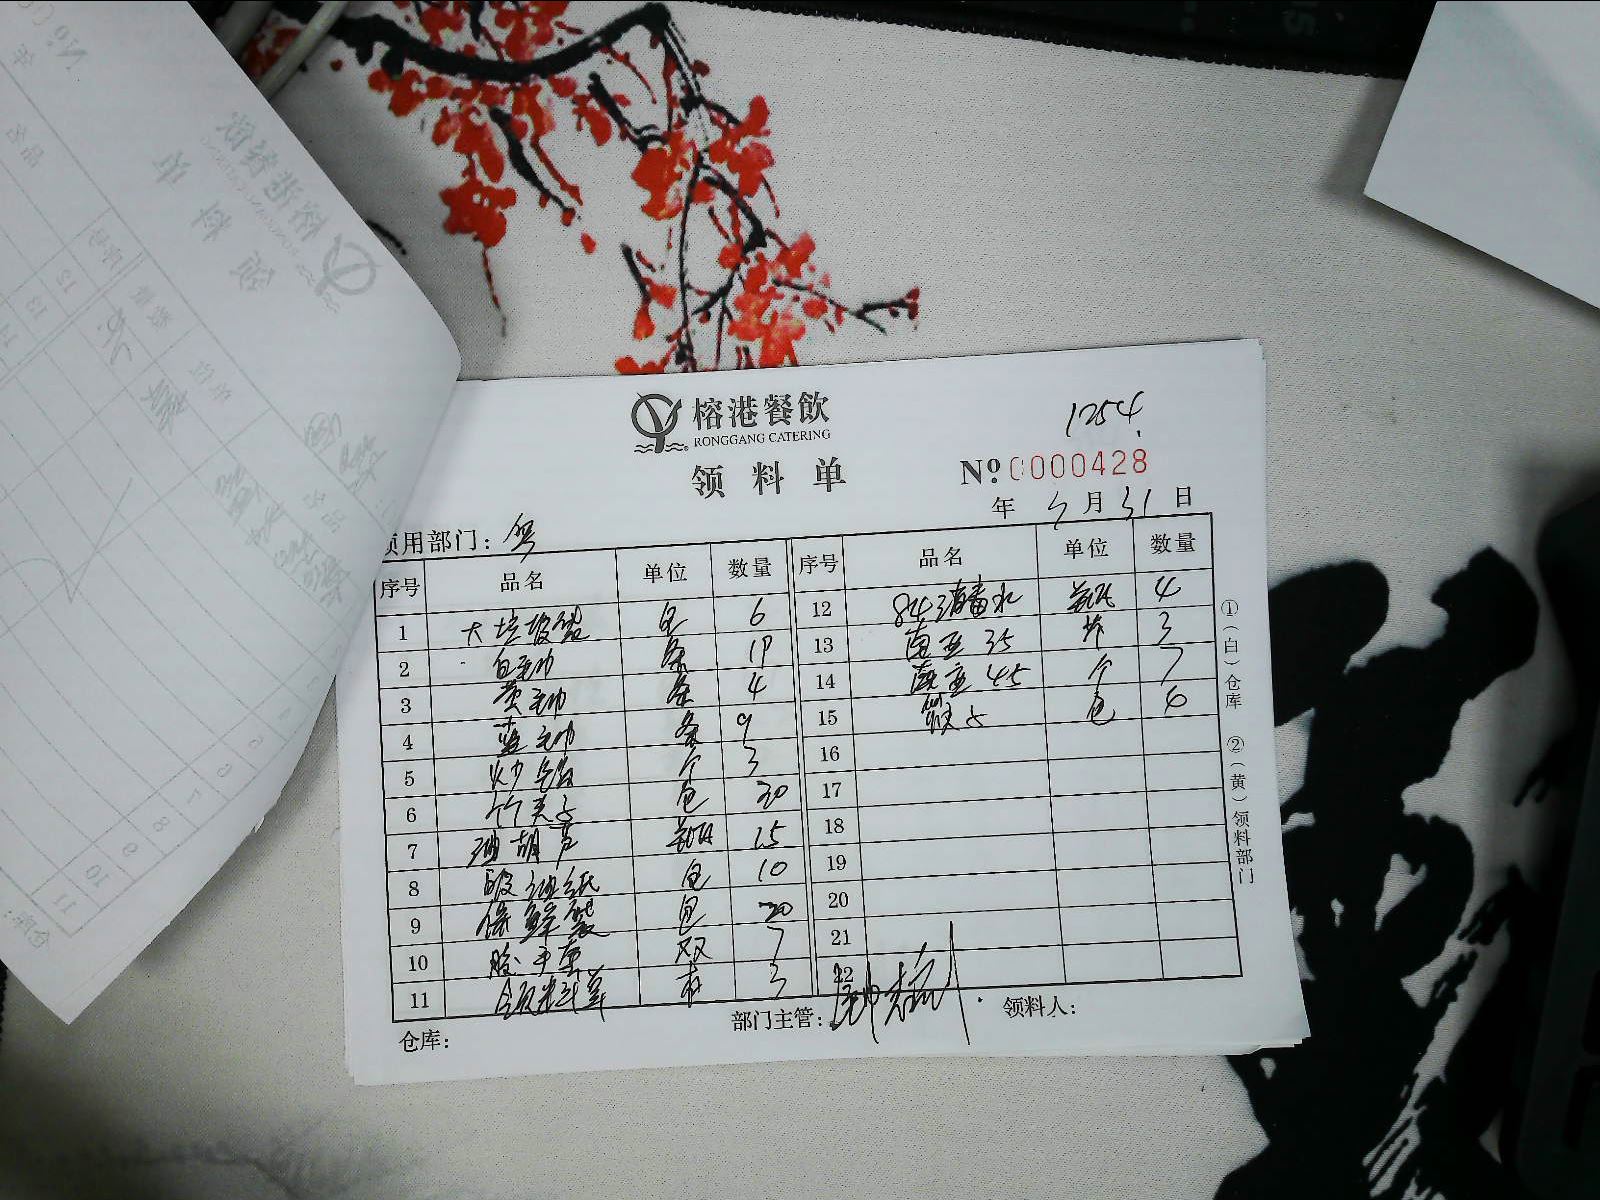 榕港餐飲
RONGGANG CATERING
1254
领料单
№ 0000428
年 5月 31日
领用部门: 粤
序号 品名 单位 数量 序号 品名 单位 数量
1 大垃圾袋 包 6 12 84消毒水 瓶 4
2 白毛巾 条 19 13 南亚35 3
3 黄毛巾 条 4 14 南亚45 个 7
4 蓝毛巾 条 9 15 包 6
5 个 3 16
6 竹夹子 包 30 17
7 油胡芦 瓶 15 18
8 吸油纸 包 10 19
9 保鲜袋 包 20 20
10 胶手套 双 7 21
11 领料单 本 3 22
仓库: 部门主管: 领料人:
①(白)仓库 ②(黄)领料部门